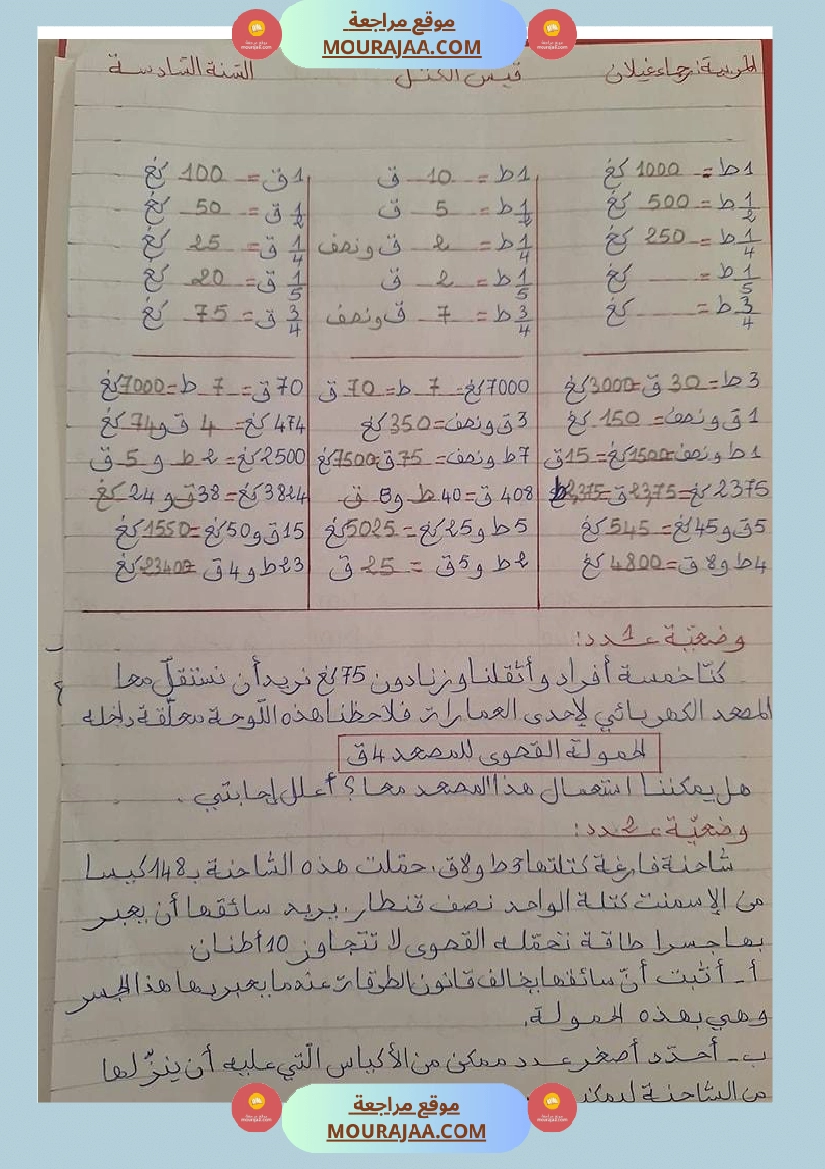 موقع مراجعة
MOURAJAA.COM
المربية: رجاء غيلان قيس الكتل السنة السادسة
1ط = 1000 كغ 1ط = 10 ق 1ق = 100 كغ
1/2 ط = 500 كغ 1/2 ط = 5 ق 1/2 ق = 50 كغ
1/4 ط = 250 كغ 1/4 ط = 2 ق ونصف 1/4 ق = 25 كغ
1/5 ط = كغ 1/5 ط = 2 ق 1/5 ق = 20 كغ
3/4 ط = كغ 3/4 ط = 7 ق ونصف 3/4 ق = 75 كغ
3ط = 30 ق = 3000 كغ 7000 كغ = 7 ط = 70 ق 70ق = 7 ط = 7000 كغ
1ق ونصف = 150 كغ 3ق ونصف = 350 كغ 474 كغ = 4 ق و 74 كغ
1ط ونصف = 1500 كغ = 15 ق 7ط ونصف = 75 ق = 7500 كغ 2500 كغ = 2 ط و 5 ق
2375 كغ = 23,75 ق = 2,375 408 ق = 40 ط و 8 ق 3824 كغ = 38 ق و 24 كغ
5ق و 45 كغ = 545 كغ 5ط و 25 كغ = 5025 كغ 15ق و 50 كغ = 1550 كغ
4ط و 8 ق = 4800 كغ 2ط و 5ق = 25 ق 23ط و 4 ق = 23400 كغ
وضعيّة عـدد 1:
كنّا خمسة أفراد وأثقلنا وزنا دون 75 كغ نريد أن نستقلّ معا
المصعد الكهربائي لإحدى العمارات فلاحظنا هذه اللّوحة معلّقة داخله
الحمولة القصوى للمصعد 4 ق
هل يمكننا استعمال هذا المصعد معا؟ أعلل إجابتي.
وضعيّة عـدد 2:
شاحنة فارغة كتلتها 3ط و 8ق، حمّلت هذه الشاحنة بـ 148 كيسا
من الإسمنت كتلة الواحد نصف قنطار. يريد سائقها أن يعبر
بها جسرا طاقة تحمّله القصوى لا تتجاوز 10 أطنان
أ - أثبت أنّ سائقها يخالف قانون الطرقات عندما يعبر بها هذا الجسر
وهي بهذه الحمولة.
ب - أحدّد أصغر عدد ممكن من الأكياس الّتي عليه أن ينزّلها
من الشاحنة
موقع مراجعة
MOURAJAA.COM